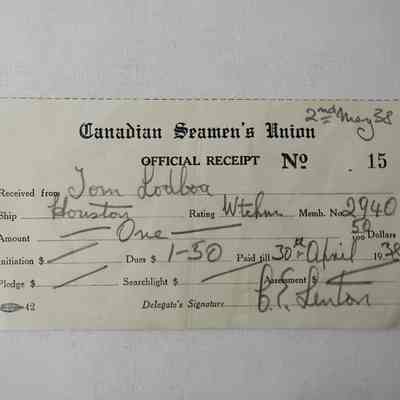 2nd May 38
Canadian Seamen's Union
OFFICIAL RECEIPT No 15
Received from Tom Lodboa
Ship Houston Rating Wtchmn Memb. No. 2940
Amount One 50/100 Dollars
Initiation $ Dues $ 1-50 Paid till 30th April 1938
Pledge $ Searchlight $ Assessment $
42 Delegate's Signature